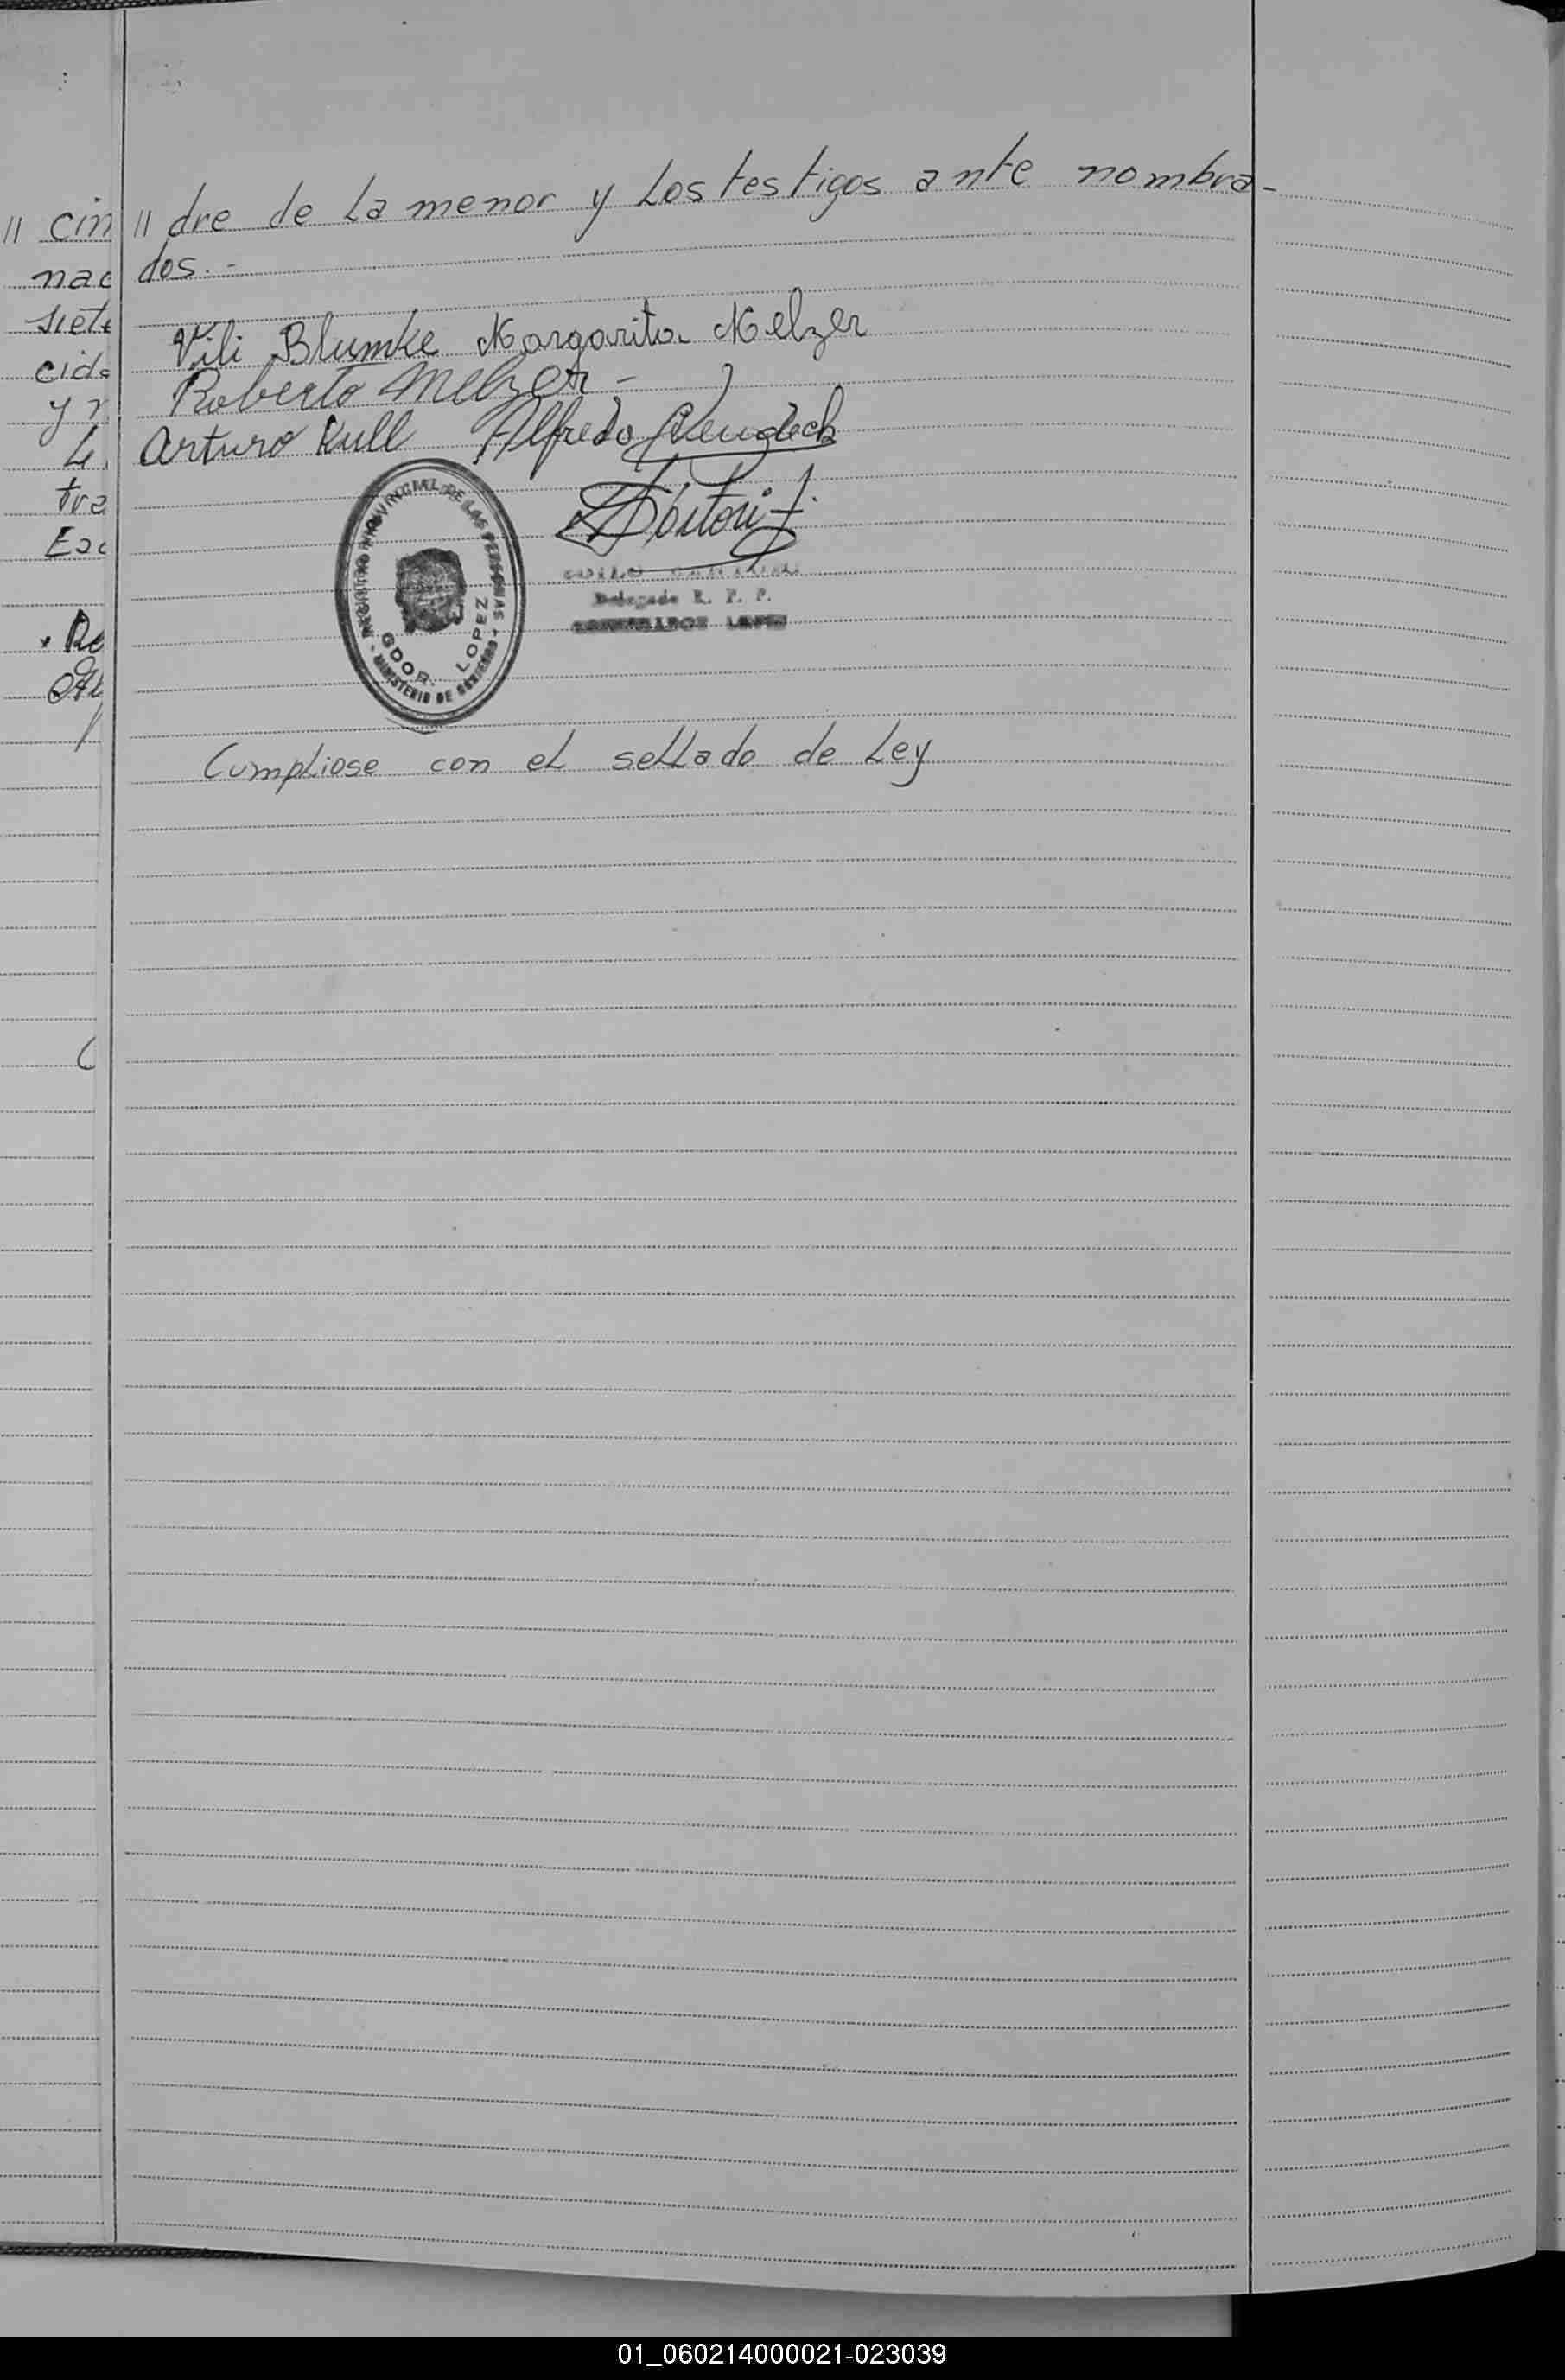 // dre de La menor y Los testigos ante nombra-
dos.-
Vili Blumke Margarita Melzer
Roberto Melzer -
Arturo Kull Alfredo
REGISTRO PROVINCIAL DE LAS PERSONAS
GDOR. LOPEZ
MINISTERIO DE GOBIERNO
Delegado R. P. P.
Cumpliose con el seLLado de Ley
// cin
nac
siete
cida
y r
L
tra
Esc
01_060214000021-023039